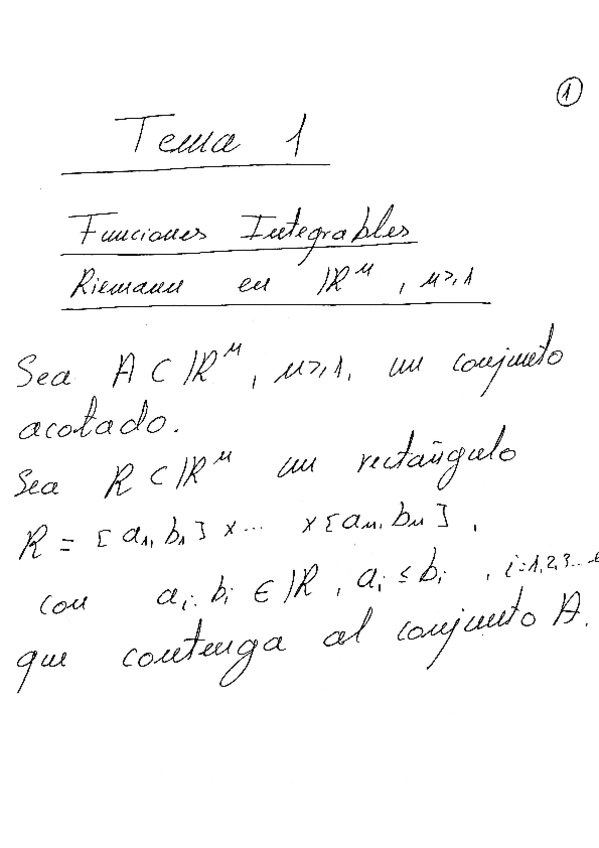 ①
Tema 1
Funciones Integrables
Riemann en ℝⁿ, n≥1
Sea A ⊂ ℝⁿ, n≥1, un conjunto
acotado.
Sea R ⊂ ℝⁿ un rectángulo
R = [a₁, b₁] × ... × [aₙ, bₙ],
con aᵢ, bᵢ ∈ ℝ, aᵢ ≤ bᵢ, i=1,2,3...
que contenga al conjunto A.